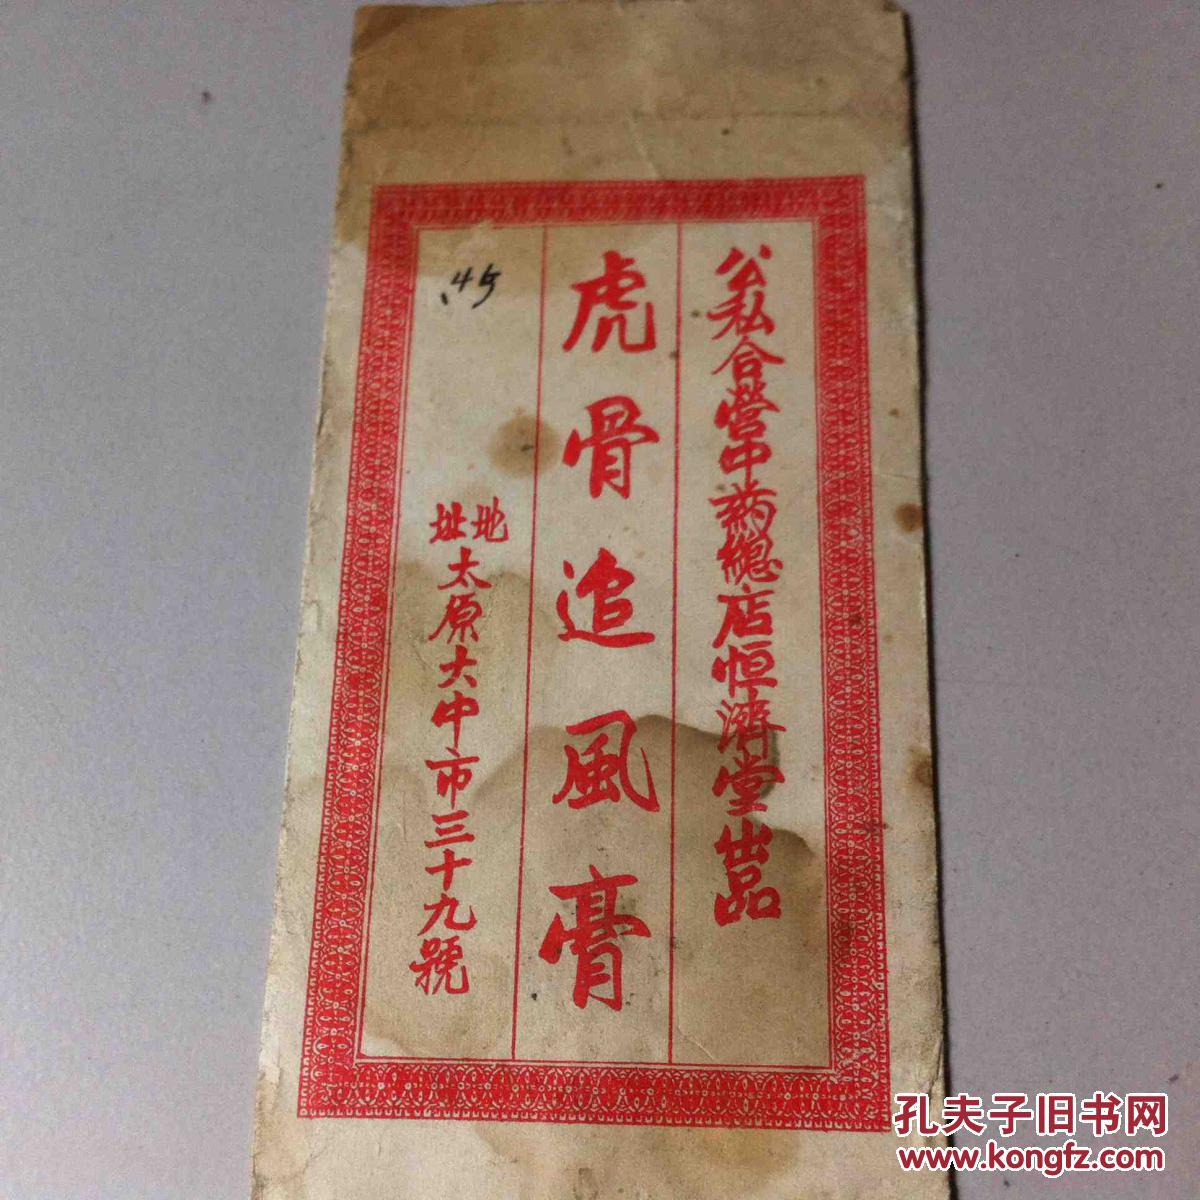 公私合營中药總店恒濟堂出品
虎骨追風膏
地址
太原大中市三十九號
.45
孔夫子旧书网
www.kongfz.com